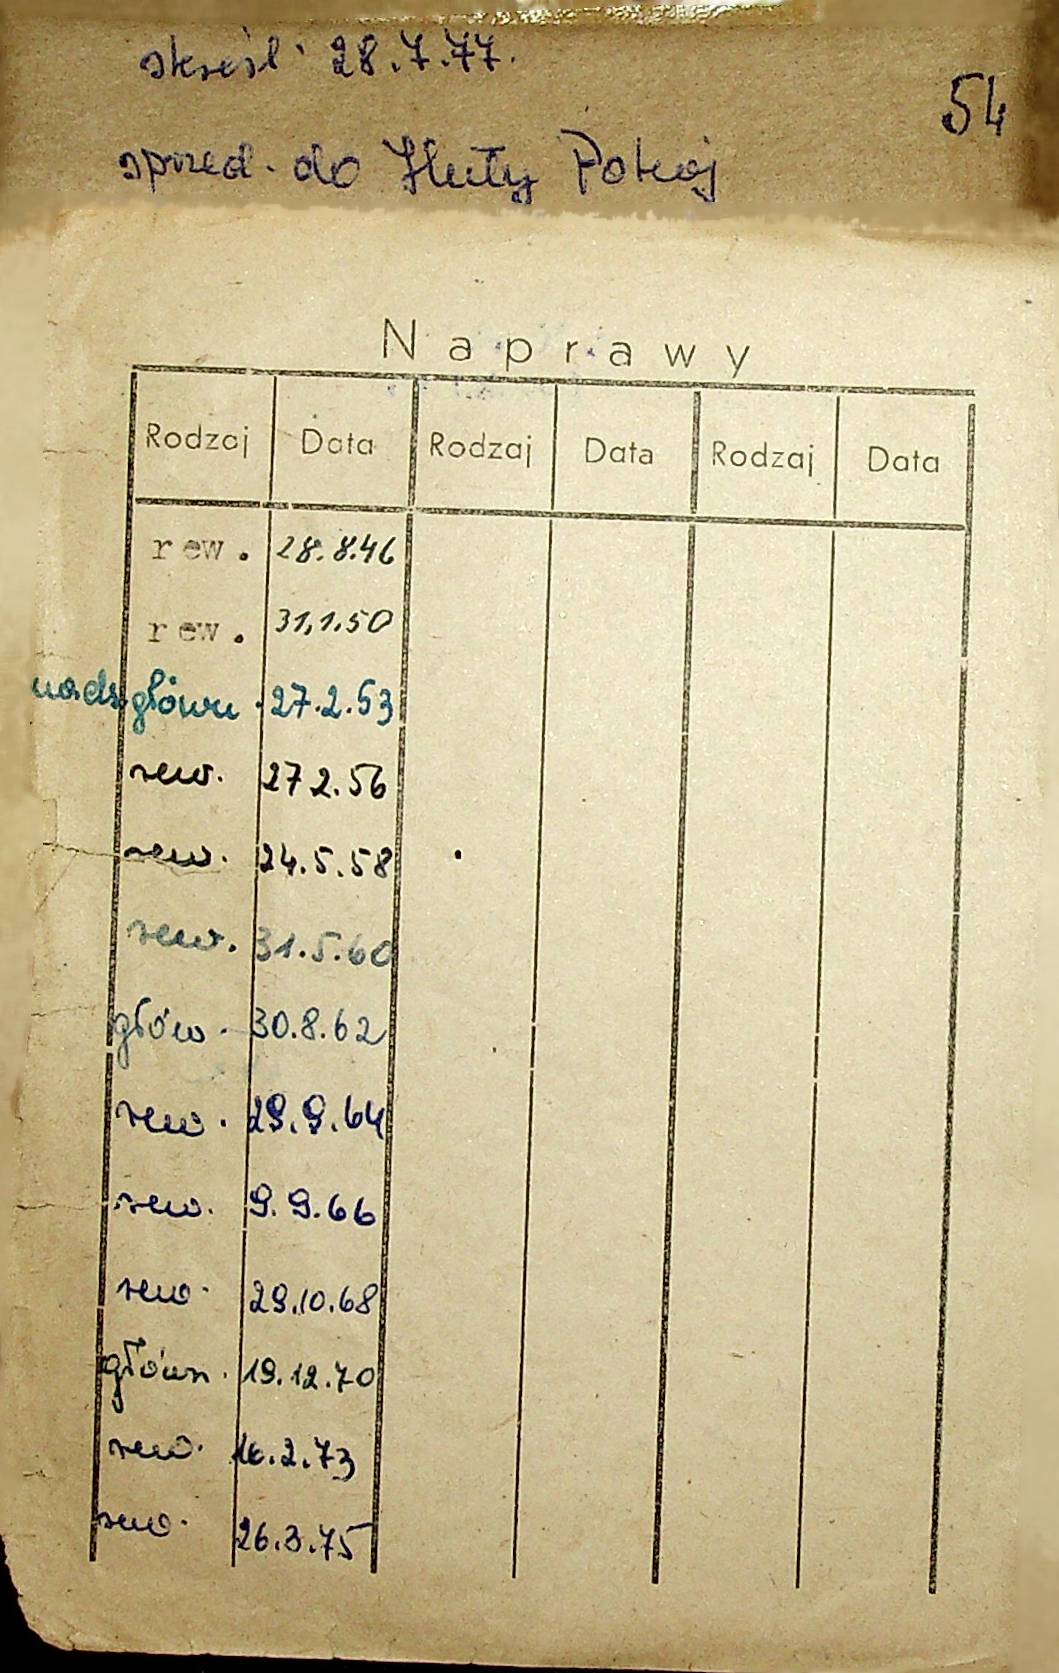 skreśl. 28.7.77.
54
sprzed. do Huty Pokój
Naprawy
Rodzaj Data Rodzaj Data Rodzaj Data
rew. 28.8.46
rew. 31.1.50
nadz. główn. 27.2.53
rew. 27 2.56
rew. 24.5.58
rew. 31.5.60
głów. 30.8.62
rew. 29.9.64
rew. 9.9.66
rew. 29.10.68
główn. 19.12.70
rew. 16.2.73
rew. 26.3.75